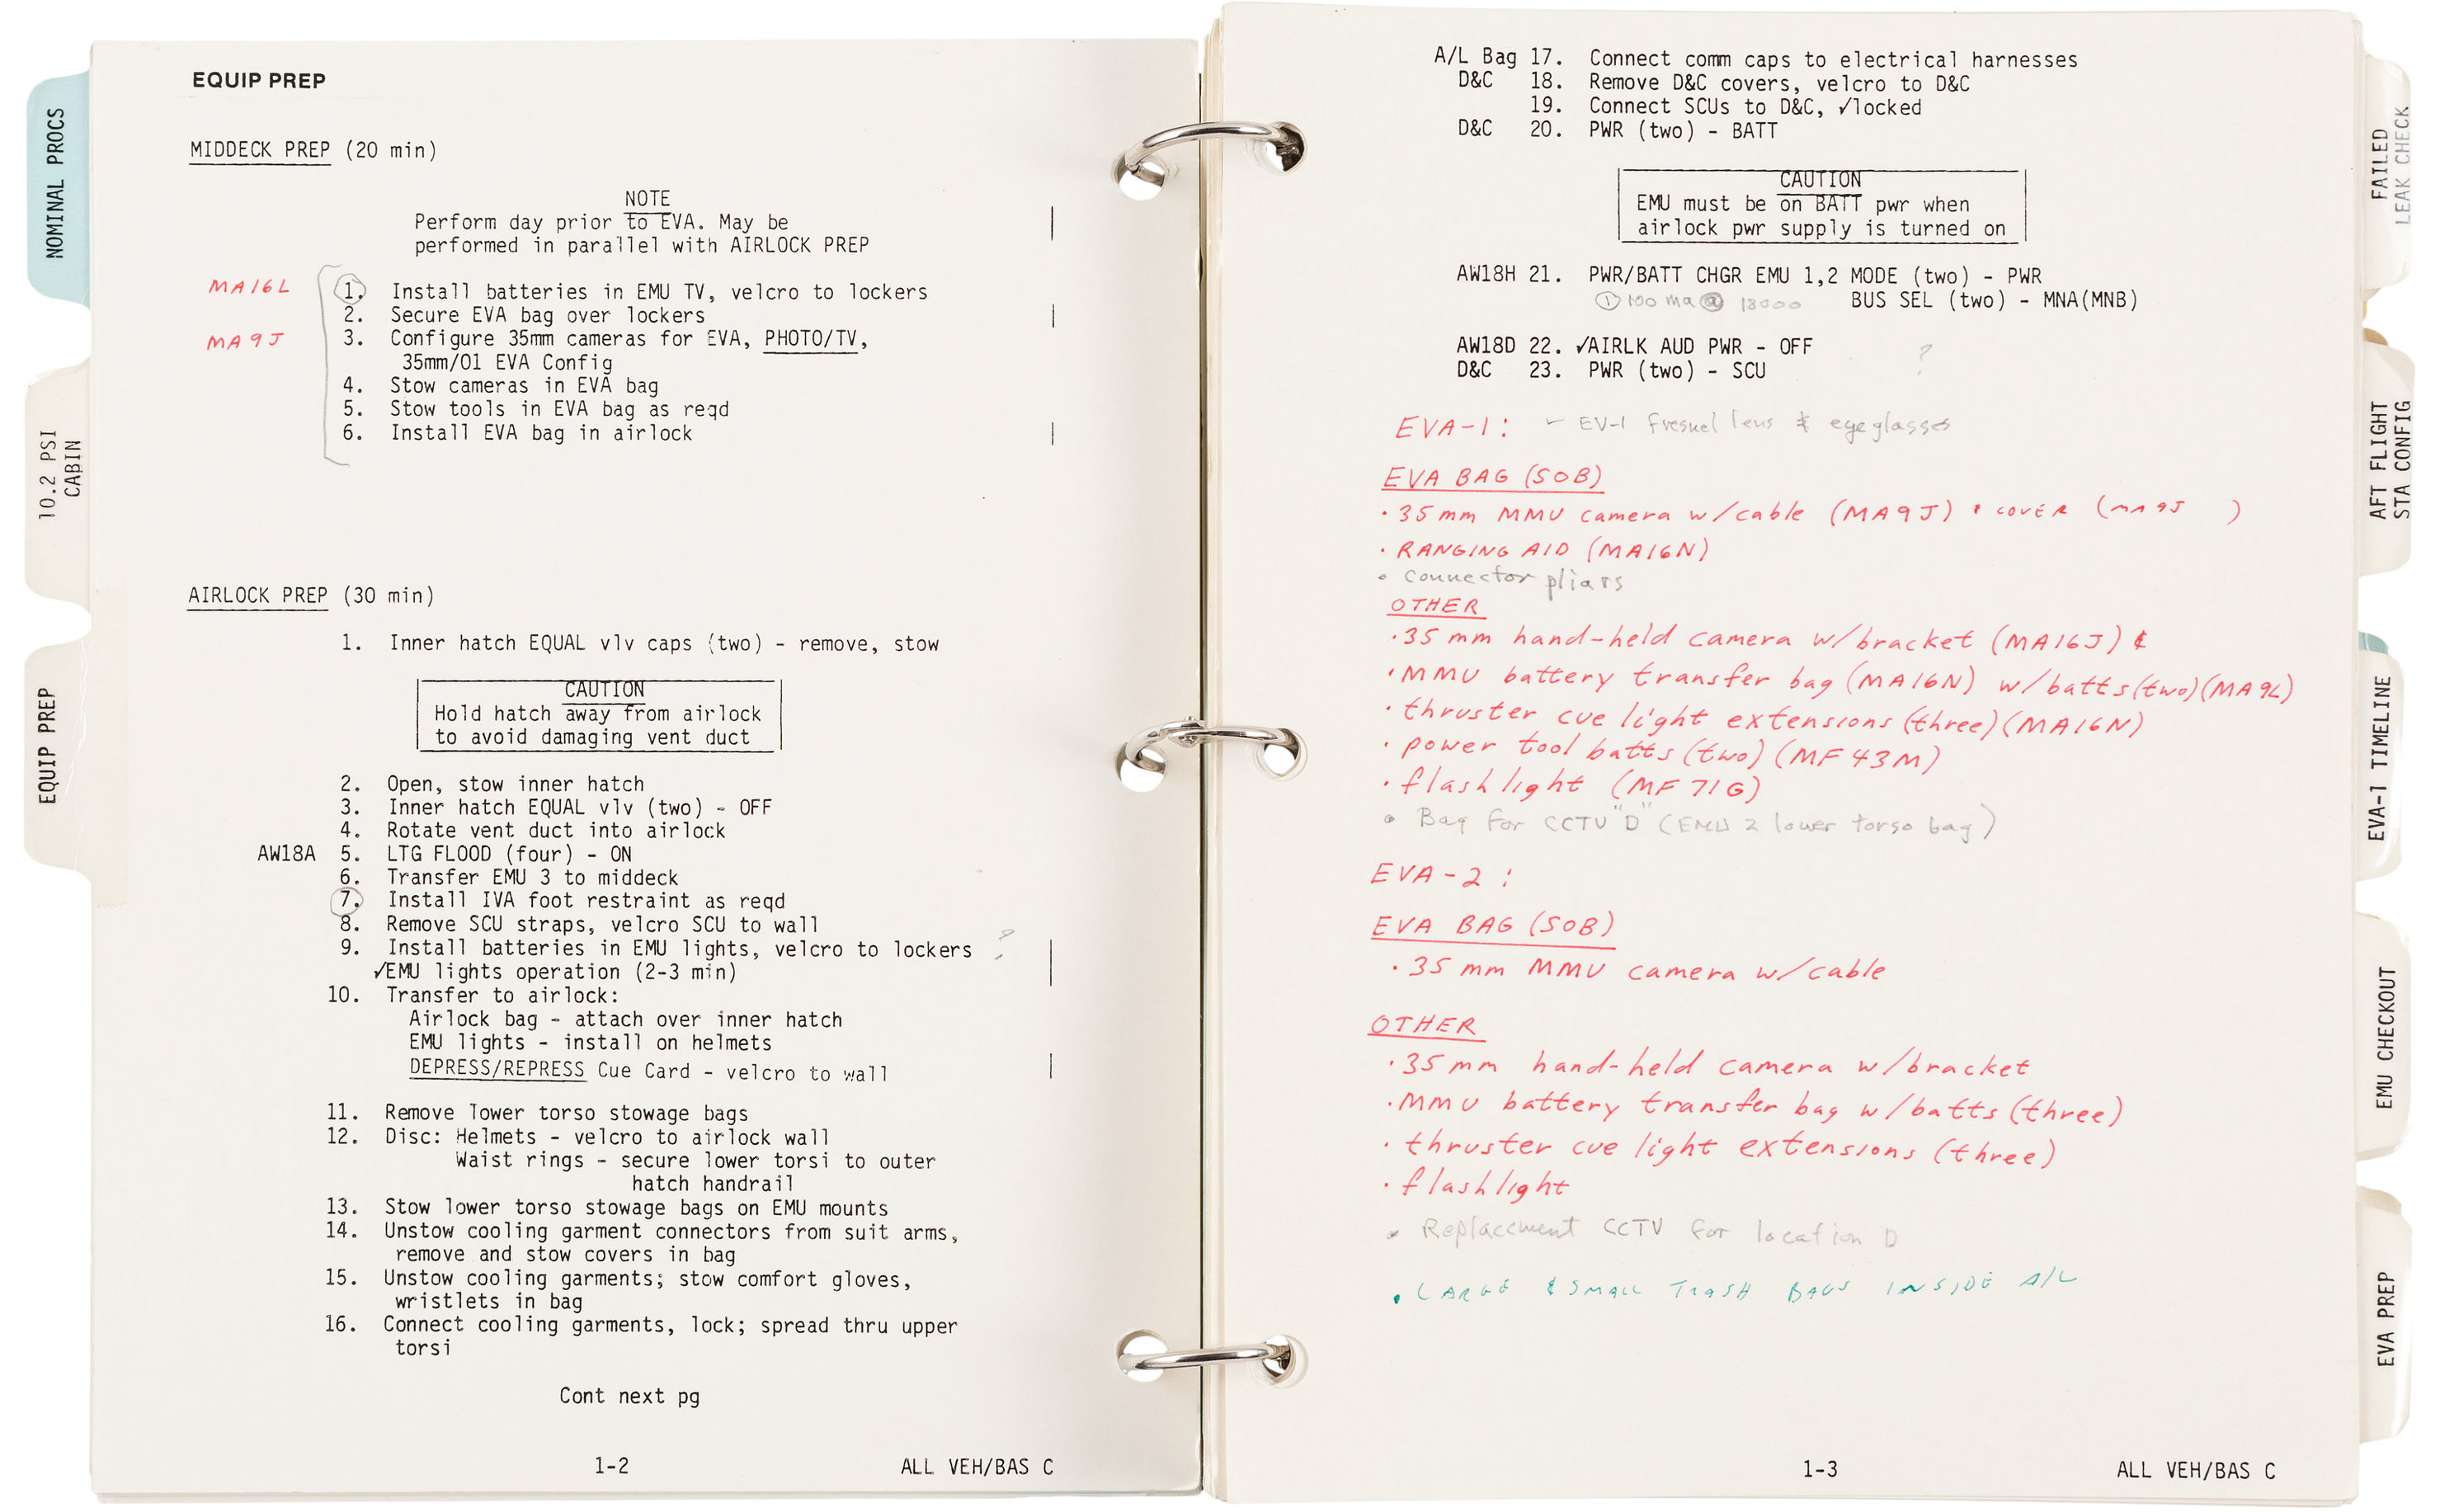 NOMINAL PROCS
10.2 PSI
CABIN
EQUIP PREP
EQUIP PREP
MIDDECK PREP (20 min)
NOTE
Perform day prior to EVA. May be
performed in parallel with AIRLOCK PREP
MA16L
1. Install batteries in EMU TV, velcro to lockers
2. Secure EVA bag over lockers
MA9J
3. Configure 35mm cameras for EVA, PHOTO/TV,
35mm/01 EVA Config
4. Stow cameras in EVA bag
5. Stow tools in EVA bag as reqd
6. Install EVA bag in airlock
AIRLOCK PREP (30 min)
1. Inner hatch EQUAL vlv caps (two) - remove, stow
CAUTION
Hold hatch away from airlock
to avoid damaging vent duct
2. Open, stow inner hatch
3. Inner hatch EQUAL vlv (two) - OFF
4. Rotate vent duct into airlock
AW18A 5. LTG FLOOD (four) - ON
6. Transfer EMU 3 to middeck
7. Install IVA foot restraint as reqd
8. Remove SCU straps, velcro SCU to wall
9. Install batteries in EMU lights, velcro to lockers ?
✓EMU lights operation (2-3 min)
10. Transfer to airlock:
Airlock bag - attach over inner hatch
EMU lights - install on helmets
DEPRESS/REPRESS Cue Card - velcro to wall
11. Remove lower torso stowage bags
12. Disc: Helmets - velcro to airlock wall
Waist rings - secure lower torsi to outer
hatch handrail
13. Stow lower torso stowage bags on EMU mounts
14. Unstow cooling garment connectors from suit arms,
remove and stow covers in bag
15. Unstow cooling garments; stow comfort gloves,
wristlets in bag
16. Connect cooling garments, lock; spread thru upper
torsi
Cont next pg
1-2 ALL VEH/BAS C
A/L Bag 17. Connect comm caps to electrical harnesses
D&C 18. Remove D&C covers, velcro to D&C
19. Connect SCUs to D&C, ✓locked
D&C 20. PWR (two) - BATT
CAUTION
EMU must be on BATT pwr when
airlock pwr supply is turned on
AW18H 21. PWR/BATT CHGR EMU 1,2 MODE (two) - PWR
① 100 ma @ 18000 BUS SEL (two) - MNA(MNB)
AW18D 22. ✓AIRLK AUD PWR - OFF ?
D&C 23. PWR (two) - SCU
EVA-1: - EV-1 Fresnel lens & eyeglasses
EVA BAG (SOB)
• 35 mm MMU camera w/cable (MA9J) & COVER (MA9J )
• RANGING AID (MA16N)
• connector pliars
OTHER
• 35 mm hand-held camera w/bracket (MA16J) &
• MMU battery transfer bag (MA16N) w/batts (two) (MA9L)
• thruster cue light extensions (three) (MA16N)
• power tool batts (two) (MF43M)
• flashlight (MF71G)
• Bag for CCTV "D" (EMU 2 lower torso bag)
EVA-2:
EVA BAG (SOB)
• 35 mm MMU camera w/cable
OTHER
• 35 mm hand-held camera w/bracket
• MMU battery transfer bag w/batts (three)
• thruster cue light extensions (three)
• flashlight
• Replacement CCTV for location D
• LARGE & SMALL TRASH BAGS INSIDE A/L
1-3 ALL VEH/BAS C
FAILED
LEAK CHECK
AFT FLIGHT
STA CONFIG
EVA-1 TIMELINE
EMU CHECKOUT
EVA PREP